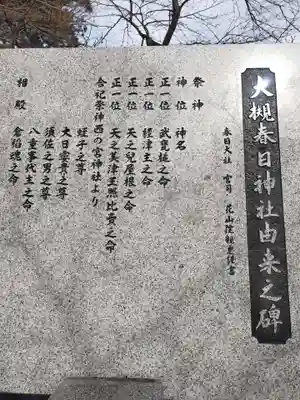 大槻春日神社由来之碑
春日大社 宮司 花山院親忠謹書
祭神
神位 神名
正一位 武甕槌之命
正一位 経津主之命
正一位 天之兒屋根之命
正一位 天之美津玉照比賣之命
合祀祭神西の宮神社より
蛭子之尊
大日霊貴之尊
須佐之男之尊
八重事代主之命
相殿
倉稲魂之命